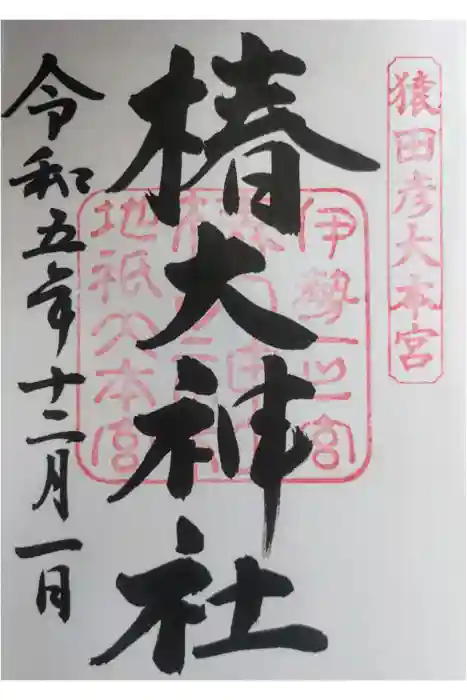 猿田彦大本宮
椿大神社
伊勢一之宮
地祇大本宮
令和五年十二月一日